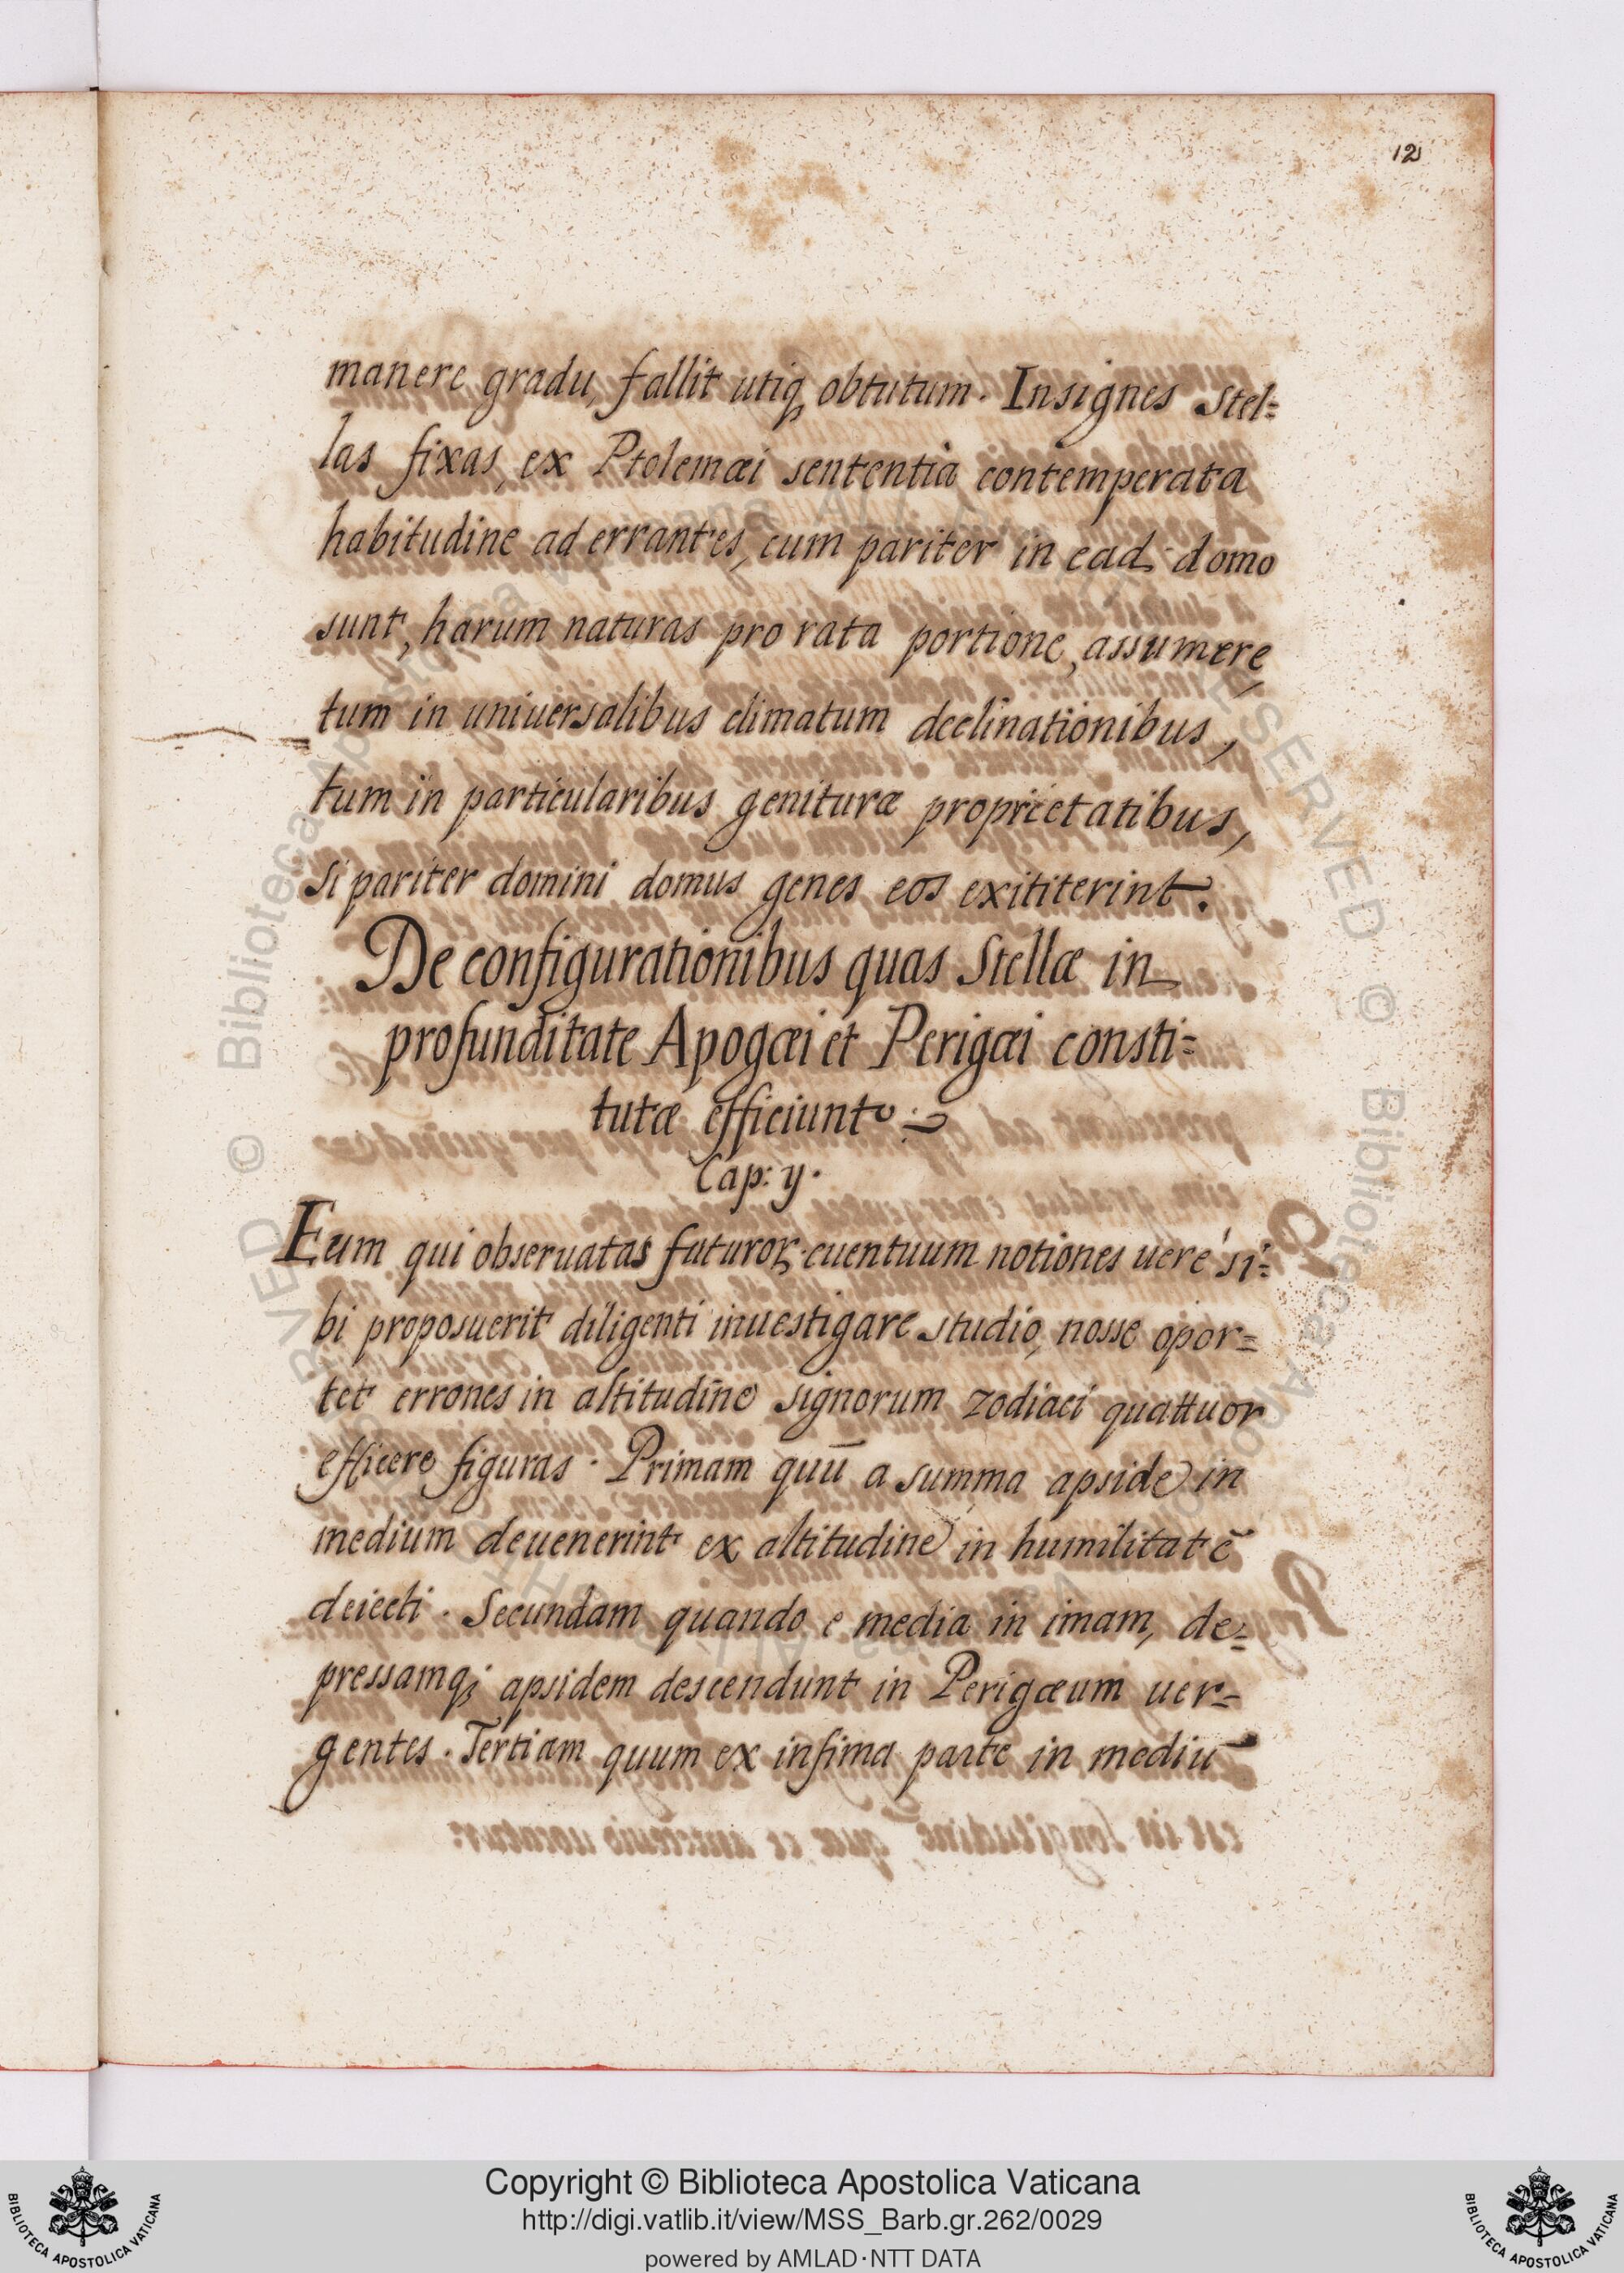 12
manere gradu, fallit utiq obtutum. Insignes Stel=
las fixas, ex Ptolemæi sententia contemperata
habitudine ad errantes, cum pariter in ead. domo
sunt, harum naturas pro rata portione, assumere,
tum in uniuersalibus climatum declinationibus,
tum in particularibus genituræ proprietatibus,
si pariter domini domus genes eos exititerint.
De configurationibus quas Stellæ in
profunditate Apogæi et Perigæi consti=
tutæ efficiunt
Cap: y.
Eum qui obseruatas futuroꝝ euentuum notiones uere si=
bi proposuerit diligenti inuestigare studio, nosse opor=
tet errones in altitudine signorum zodiaci quattuor
efficere figuras. Primam quū a summa apside in
medium deuenerint ex altitudine in humilitatē
deiecti. Secundam quando e media in imam, de=
pressamq; apsidem descendunt in Perigæum uer=
gentes. Tertiam quum ex infima parte in mediū
Copyright © Biblioteca Apostolica Vaticana
http://digi.vatlib.it/view/MSS_Barb.gr.262/0029
powered by AMLAD·NTT DATA
BIBLIOTECA APOSTOLICA VATICANA
BIBLIOTECA APOSTOLICA VATICANA